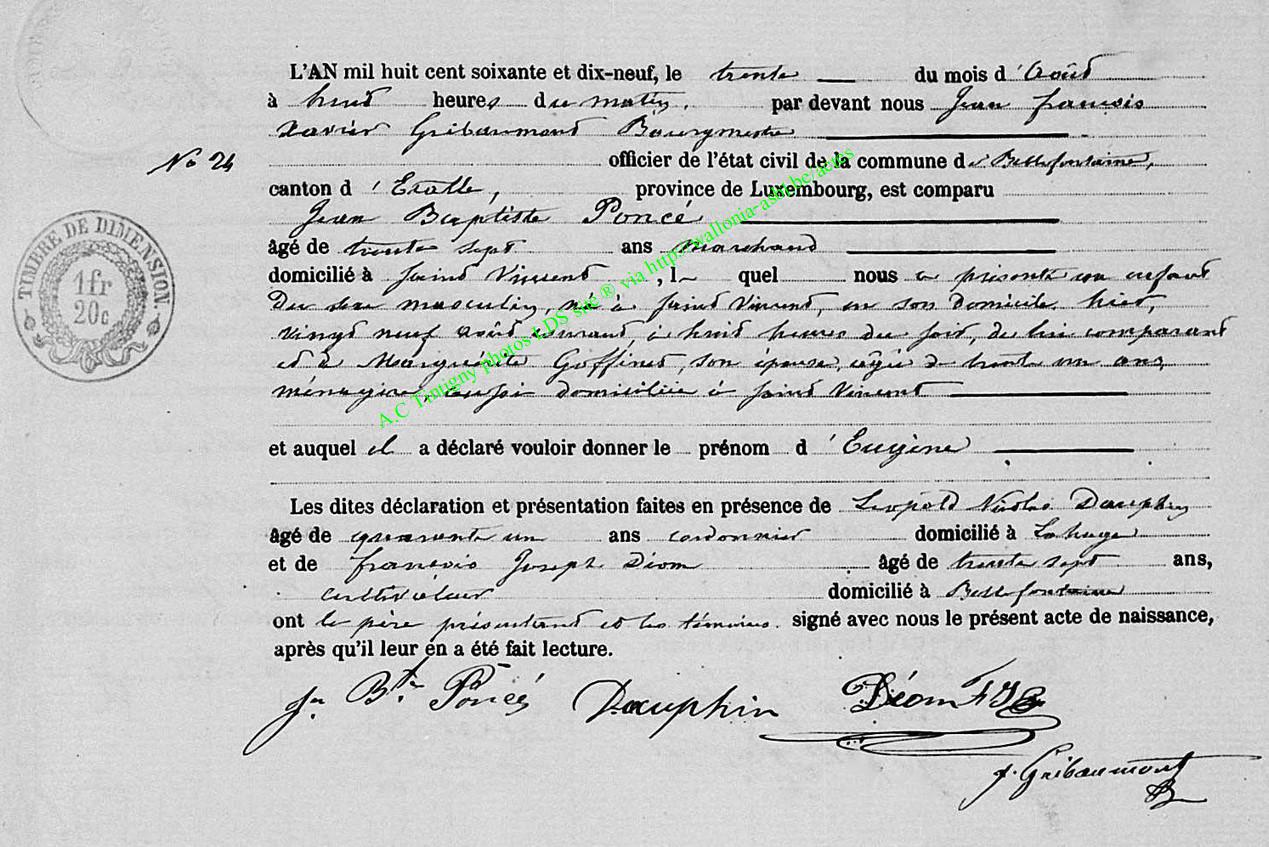 L'AN mil huit cent soixante et dix-neuf, le trente du mois d'Août
à huit heures du matin, par devant nous Jean françois
Xavier Gribaumont Bourgmestre
No 24
officier de l'état civil de la commune d'Bellefontaine,
canton d'Etalle, province de Luxembourg, est comparu
Jean Baptiste Poncé
âgé de trente sept ans marchand
domicilié à Saint Vincent, lequel nous a présenté un enfant
TIMBRE DE DIMENSION
1 fr
20c
Du sexe masculin, né à Saint Vincent, en son domicile, hier,
vingt neuf août courant, à huit heures du soir, de lui comparant
et de Marguérite Goffinet, son épouse, agée de trente un ans,
ménagère, aussi domiciliée à Saint Vincent
A.C Tintigny photos LDS site ® via http://wallonia-asbl.be/actes
et auquel il a déclaré vouloir donner le prénom d'Eugène
Les dites déclaration et présentation faites en présence de Léopold Nicolas Dauphin
âgé de quarante un ans cordonnier domicilié à Lahage
et de françois Joseph Diom âgé de trente sept ans,
cultivateur domicilié à Bellefontaine
ont le père présentant et les témoins signé avec nous le présent acte de naissance,
après qu'il leur en a été fait lecture.
Jn Bte Poncé Dauphin Déom FJ
J. Gribaumont